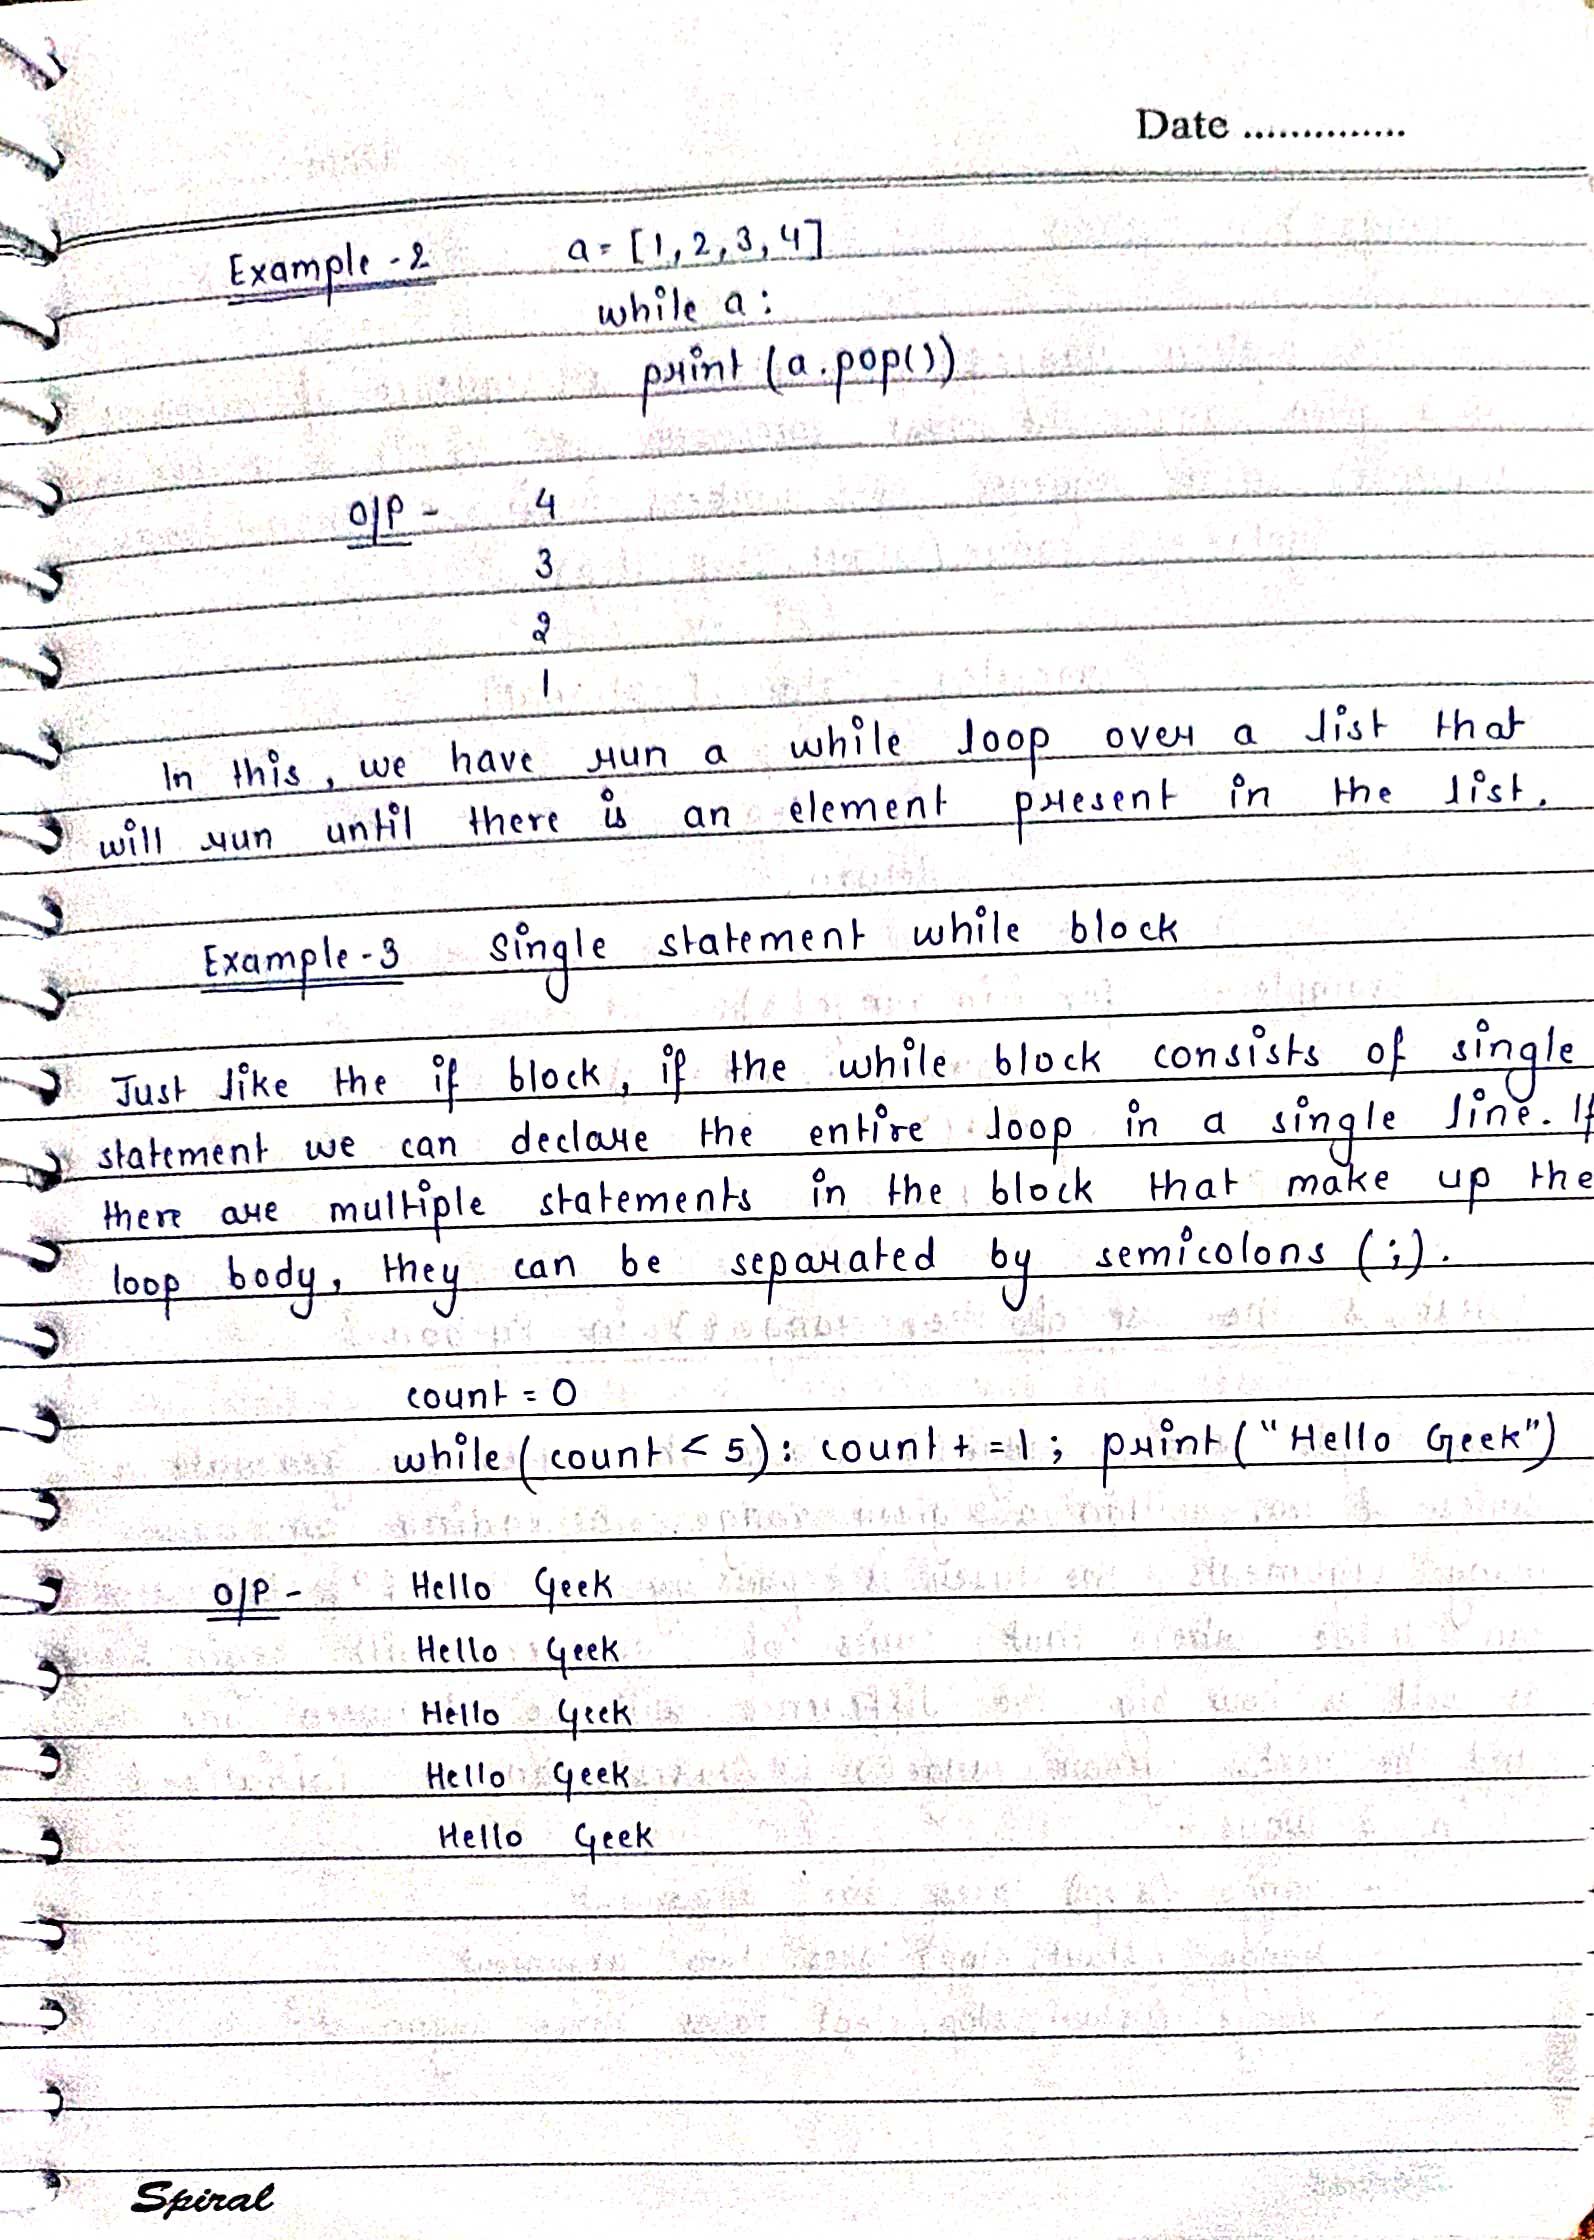 Date ..............
Example - 2 a = [1, 2, 3, 4]
while a :
print (a.pop())
O/P - 4
3
2
1
In this, we have run a while loop over a list that
will run until there is an element present in the list.
Example - 3 Single statement while block
Just like the if block, if the while block consists of single
statement we can declare the entire loop in a single line. If
there are multiple statements in the block that make up the
loop body, they can be separated by semicolons (;).
count = 0
while (count < 5) : count + = 1 ; print ("Hello Geek")
O/P - Hello Geek
Hello Geek
Hello Geek
Hello Geek
Hello Geek
Spiral